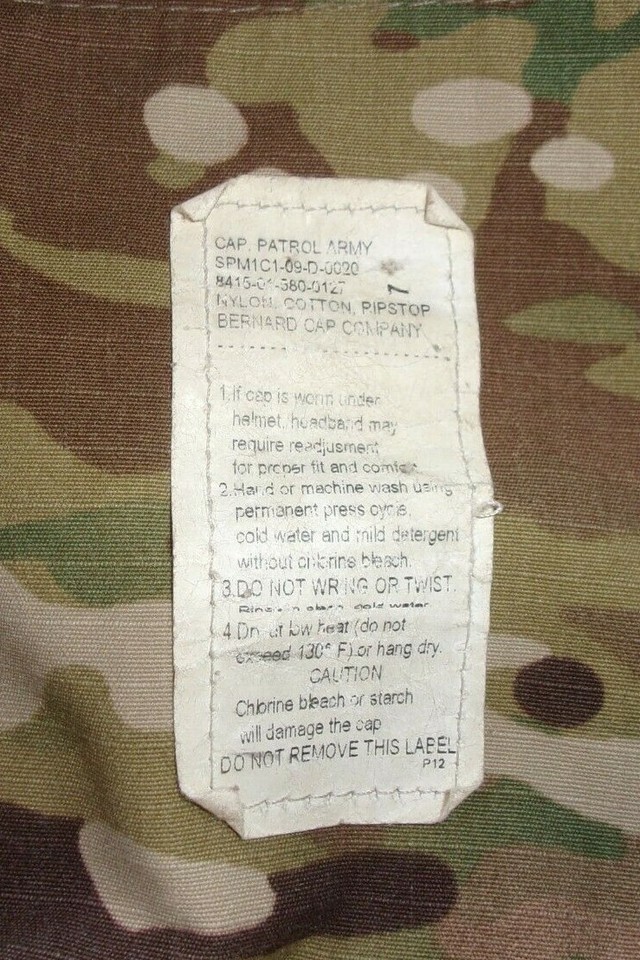 CAP, PATROL ARMY
SPM1C1-09-D-0020
8415-01-580-0127
7
NYLON, COTTON, RIPSTOP
BERNARD CAP COMPANY
1.If cap is worn under
helmet, headband may
require readjusment
for proper fit and comfort
2.Hand or machine wash using
permanent press cycle,
cold water and mild detergent
without chlorine bleach.
3.DO NOT WRING OR TWIST.
Rinse in clean, cold water
4.Dry at low heat (do not
exceed 130° F) or hang dry.
CAUTION
Chlorine bleach or starch
will damage the cap
DO NOT REMOVE THIS LABEL
P12